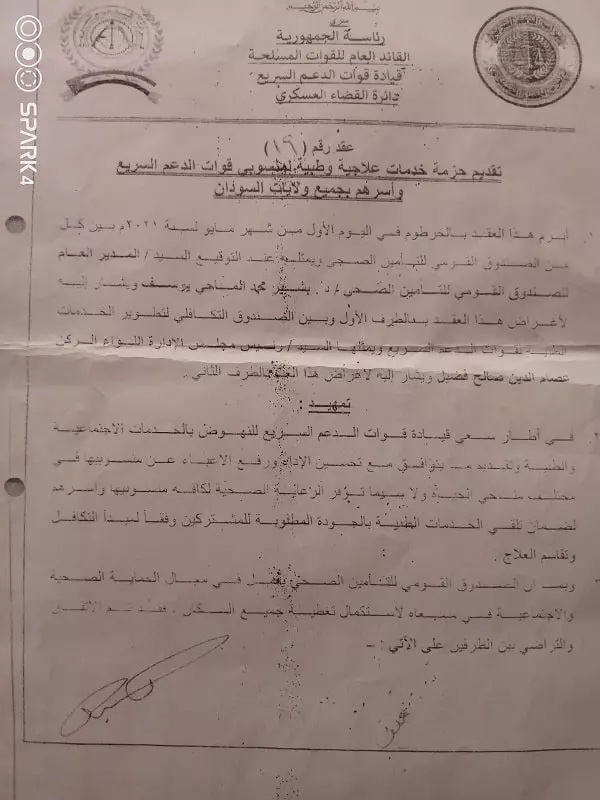 بسم الله الرحمن الرحيم
سري
رئاسة الجمهورية
القائد العام للقوات المسلحة
قيادة قوات الدعم السريع
دائرة القضاء العسكري
عقد رقم (١٦)
تقديم حزمة خدمات علاجية وطبية لمنسوبي قوات الدعم السريع
وأسرهم بجميع ولايات السودان
أبرم هذا العقد بالخرطوم في اليوم الأول من شهر مايو لسنة ٢٠٢١م بين كل
من الصندوق القومي للتأمين الصحي ويمثله عند التوقيع السيد / المدير العام
للصندوق القومي للتأمين الصحي / د. بشير محمد الماحي يوسف ويشار إليه
لأغراض هذا العقد بالطرف الأول وبين الصندوق التكافلي لتطوير الخدمات
الطبية لقوات الدعم السريع ويمثلها السيد / رئيس مجلس الإدارة اللواء الركن
عصام الدين صالح فضيل ويشار إليه لاغراض هذا العقد بالطرف الثاني .
تمهيد :
في أطار سعي قيادة قوات الدعم السريع للنهوض بالخدمات الاجتماعية
والطبية وتقديم ما يتوافق مع تحسين الإداء ورفع الاعباء عن منسوبيها في
مختلف مناحي الحياة ولا سيما توفر الرعاية الصحية لكافة منسوبيها واسرهم
لضمان تلقي الخدمات الطبية بالجودة المطلوبة للمشتركين وفقاً لمبدأ التكافل
وتقاسم العلاج .
وبما ان الصندوق القومي للتأمين الصحي يعمل في مجال الحماية الصحية
والاجتماعية في مسعاه لاستكمال تغطية جميع السكان ، فقد تم الاتفاق
والتراضي بين الطرفين على الآتي : -
SPARK4